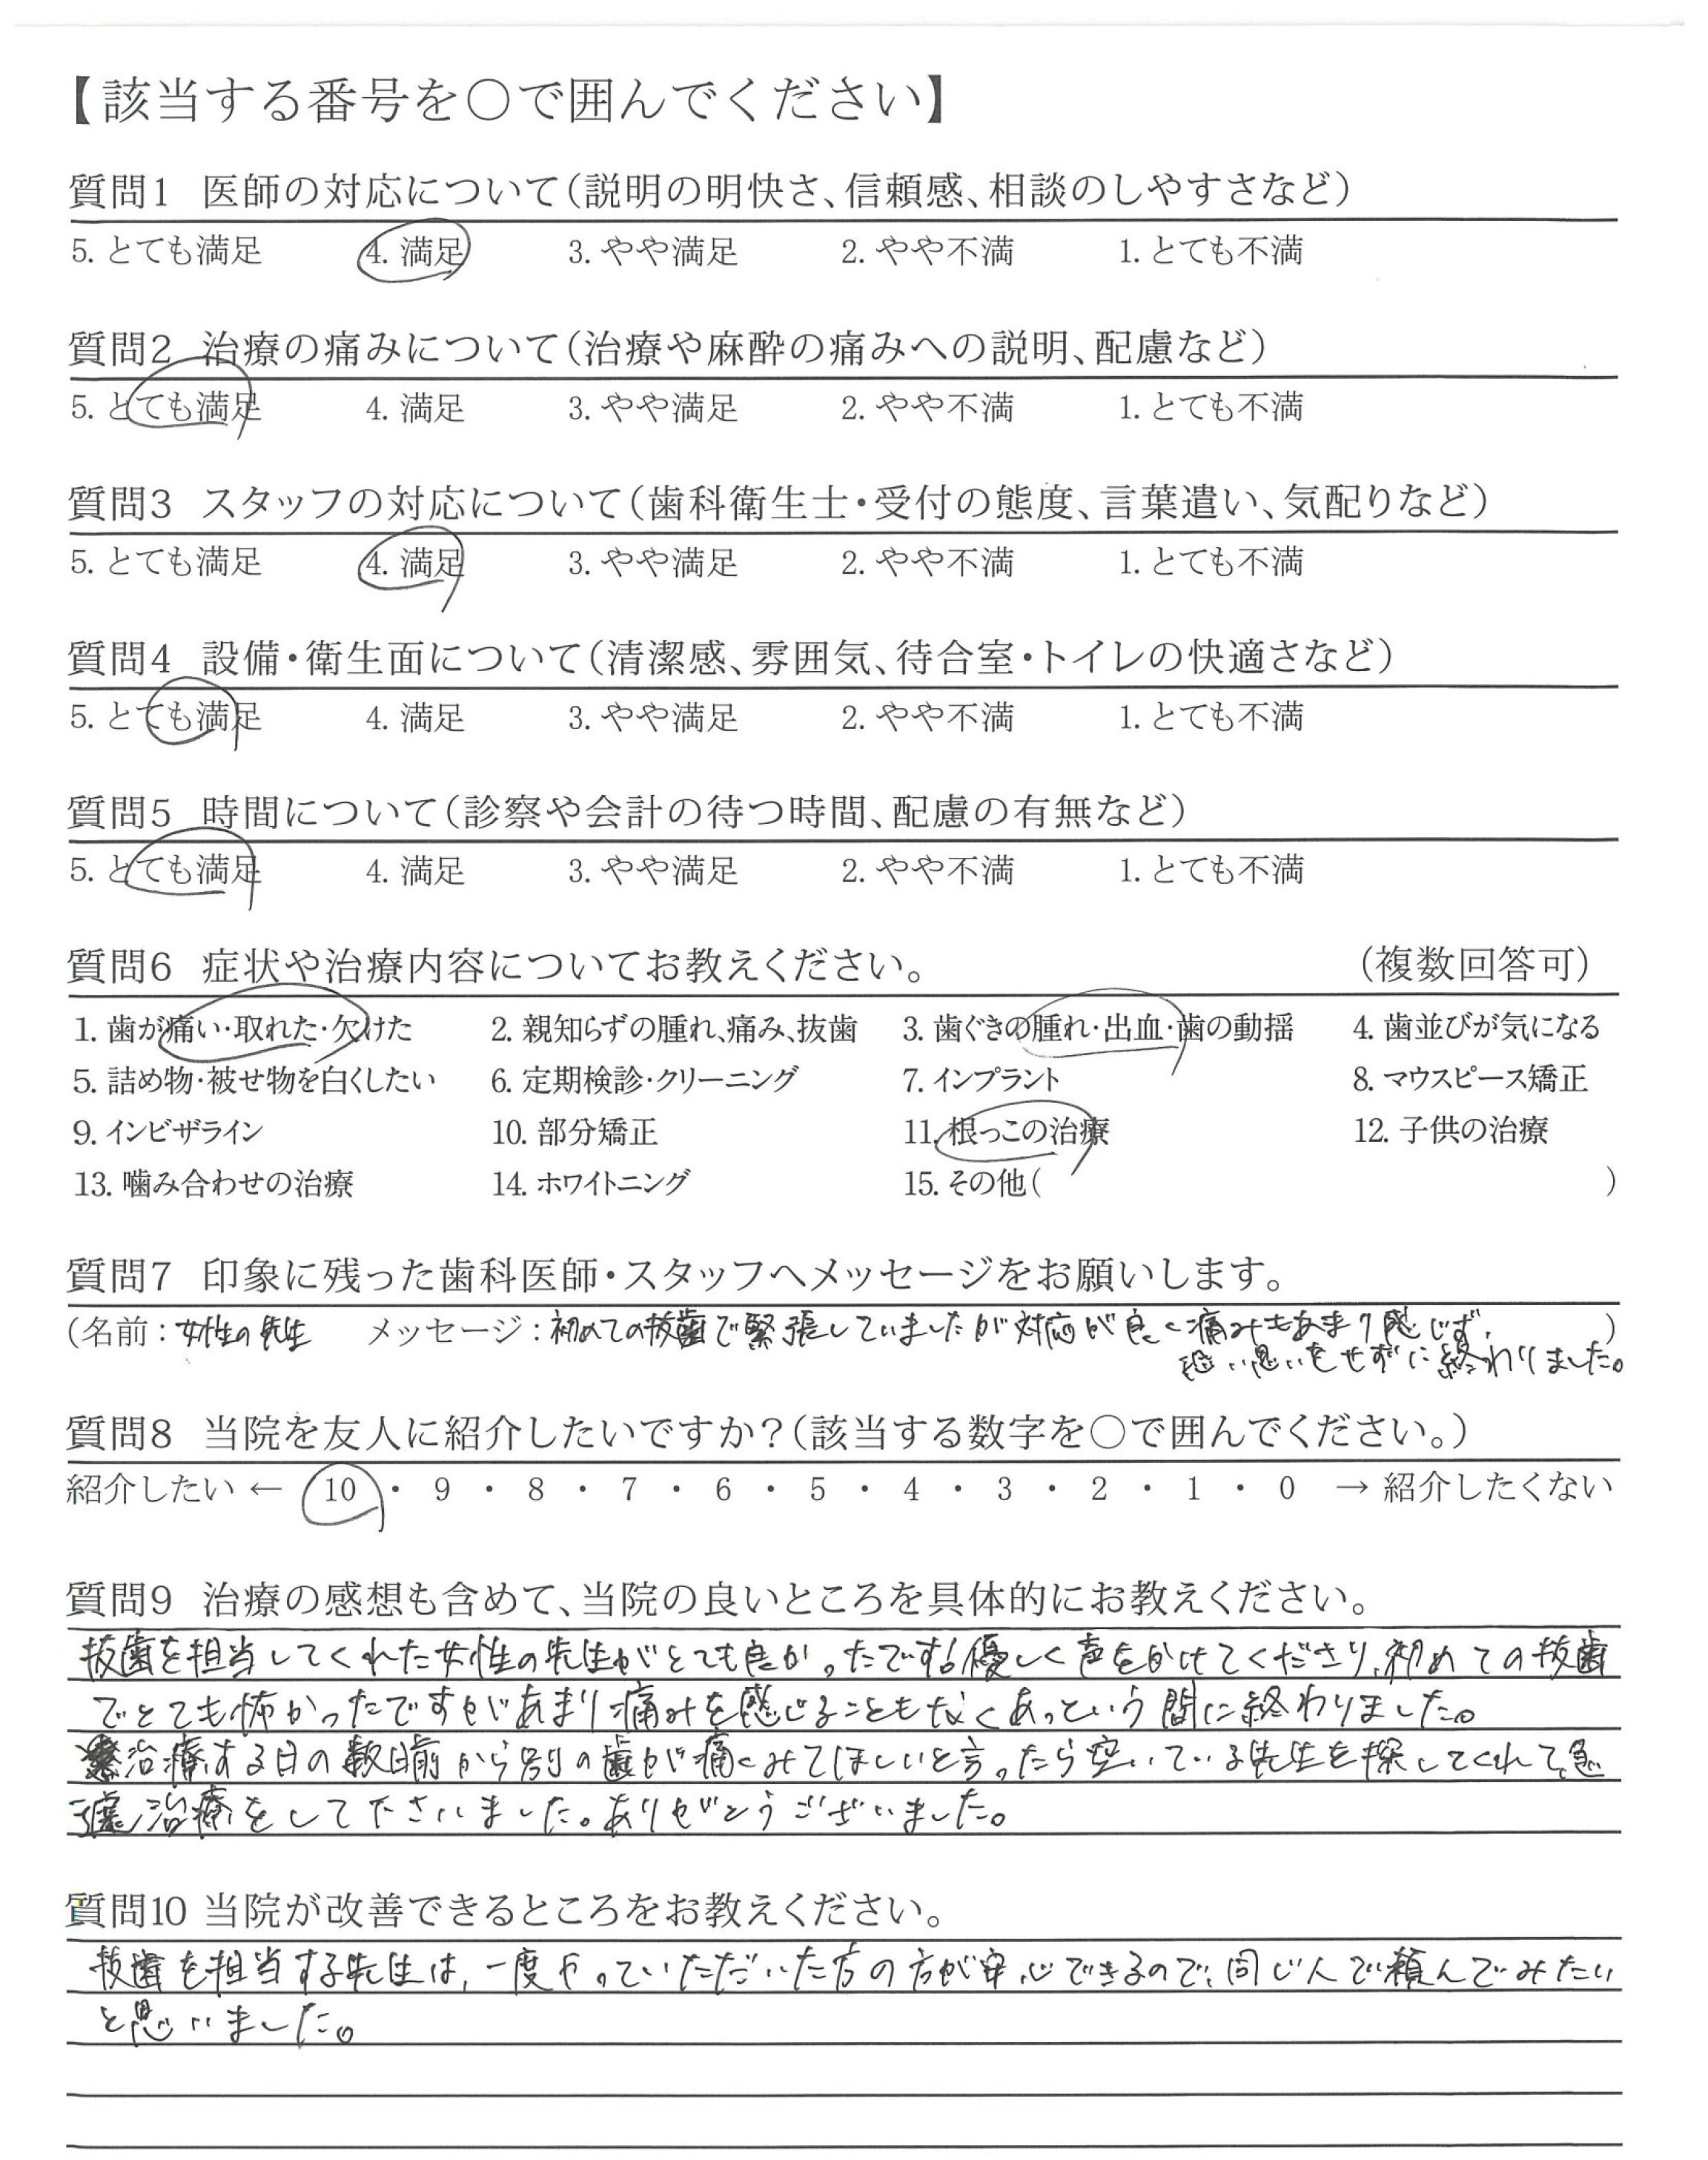 【該当する番号を○で囲んでください】
質問1 医師の対応について(説明の明快さ、信頼感、相談のしやすさなど)
5. とても満足 4. 満足 3. やや満足 2. やや不満 1. とても不満
質問2 治療の痛みについて(治療や麻酔の痛みへの説明、配慮など)
5. とても満足 4. 満足 3. やや満足 2. やや不満 1. とても不満
質問3 スタッフの対応について(歯科衛生士・受付の態度、言葉遣い、気配りなど)
5. とても満足 4. 満足 3. やや満足 2. やや不満 1. とても不満
質問4 設備・衛生面について(清潔感、雰囲気、待合室・トイレの快適さなど)
5. とても満足 4. 満足 3. やや満足 2. やや不満 1. とても不満
質問5 時間について(診察や会計の待つ時間、配慮の有無など)
5. とても満足 4. 満足 3. やや満足 2. やや不満 1. とても不満
質問6 症状や治療内容についてお教えください。 (複数回答可)
1. 歯が痛い・取れた・欠けた 2. 親知らずの腫れ、痛み、抜歯 3. 歯ぐきの腫れ・出血・歯の動揺 4. 歯並びが気になる
5. 詰め物・被せ物を白くしたい 6. 定期検診・クリーニング 7. インプラント 8. マウスピース矯正
9. インビザライン 10. 部分矯正 11. 根っこの治療 12. 子供の治療
13. 噛み合わせの治療 14. ホワイトニング 15. その他( )
質問7 印象に残った歯科医師・スタッフへメッセージをお願いします。
(名前:女性の先生 メッセージ:初めての抜歯で緊張していましたが対応が良く痛みもあまり感じず、 )
恐い思いをせずに終わりました。
質問8 当院を友人に紹介したいですか?(該当する数字を○で囲んでください。)
紹介したい ← 10 ・ 9 ・ 8 ・ 7 ・ 6 ・ 5 ・ 4 ・ 3 ・ 2 ・ 1 ・ 0 → 紹介したくない
質問9 治療の感想も含めて、当院の良いところを具体的にお教えください。
抜歯を担当してくれた女性の先生がとても良かったです!優しく声をかけてくださり、初めての抜歯
でとても怖かったですがあまり痛みを感じることもなくあっという間に終わりました。
治療する日の数日前から別の歯が痛くみてほしいと言ったら空いている先生を探してくれて、急
遽治療をして下さいました。ありがとうございました。
質問10 当院が改善できるところをお教えください。
抜歯を担当する先生は、一度やっていただいた方の方が安心できるので、同じ人で頼んでみたい
と思いました。